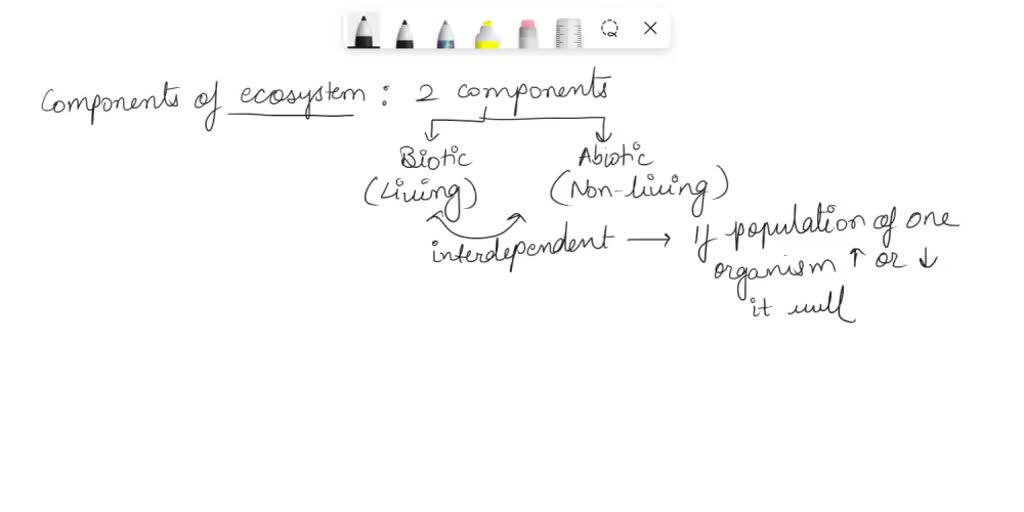 Components of ecosystem : 2 components
Biotic Abiotic
(Living) (Non-living)
interdependent → If population of one
organism ↑ or ↓
it will